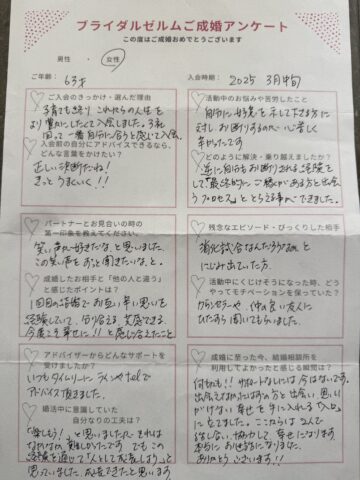 ブライダルゼルムご成婚アンケート
この度はご成婚おめでとうございます
男性 ・ 女性
ご年齢： 63才
入会時期： 2025 3月中旬
ご入会のきっかけ・選んだ理由
子育ても終り これからの人生を
より豊かにしたくて入会しました。3社
回って一番自分に合うと感じて入会
入会前の自分にアドバイスできるなら、
どんな言葉をかけたい？
正しい決断だね！
きっと うまくいく！！
パートナーとお見合いの時の
第一印象を教えてください。
笑い声が好きだな。と思いました。
この笑い声をずっと聞きたいなと。
成婚したお相手と「他の人と違う」
と感じたポイントは？
1回目の結婚でお互い辛い思いを
経験していて、分り合える、共感できる。
今度こそ幸せに！！と感じ合えたこと
アドバイザーからどんなサポートを
受けましたか？
いつもタイムリーに ラインやtelで
アドバイス頂きました。
婚活中に意識していた
自分なりの工夫は？
「楽しもう！」と思いました
でもこの
経験を通じて「人として成長しよう」と
思っていました。成長できたと思います
活動中のお悩みや苦労したこと
自分に好意を示して下さる方に
対し お断りするのが心苦しく
辛かったです
どのように解決・乗り越えましたか？
逆に自分もお断りされる経験を
して「最終的に ご縁がある方と出会
うプロセス」ととらえる事ができました。
残念なエピソード・びっくりした相手
消化試合なんだろうなぁ と
にじみ出ていた方。
活動中にくじけそうになった時、どう
やってモチベーションを保っていた？
カウンセラーや、仲の良い友人に
ひたすら聞いてもらいました。
成婚に至った今、結婚相談所を
利用してよかったと感じる瞬間は？
何もかも！！ サポートなしには今はないです。
出会えずの方と出会い 思い
がけない幸せを手に入れる「入口」に
もなってました。ここからは2人で
話し合い、協力して 幸せになります
本当にお世話になりました。
ありがとうございます！！